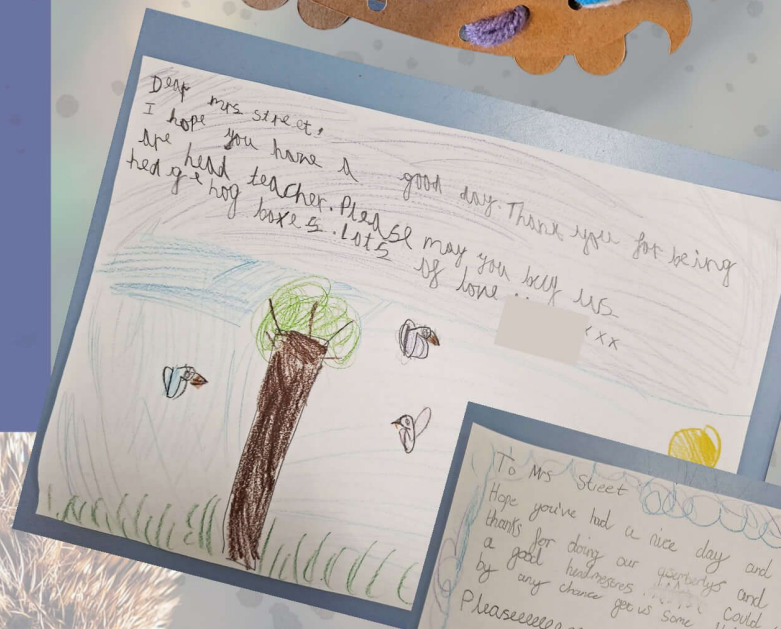 Dear mrs street,
I hope you have a good day. Thank you for being
are head teacher. Please may you buy us
hedgehog boxes. Lots of love..
xxx
To Mrs Street
Hope you've had a nice day and
thanks for doing our assemblys and
a good headmisteres could
by any chance get us some
Pleaseeeeee